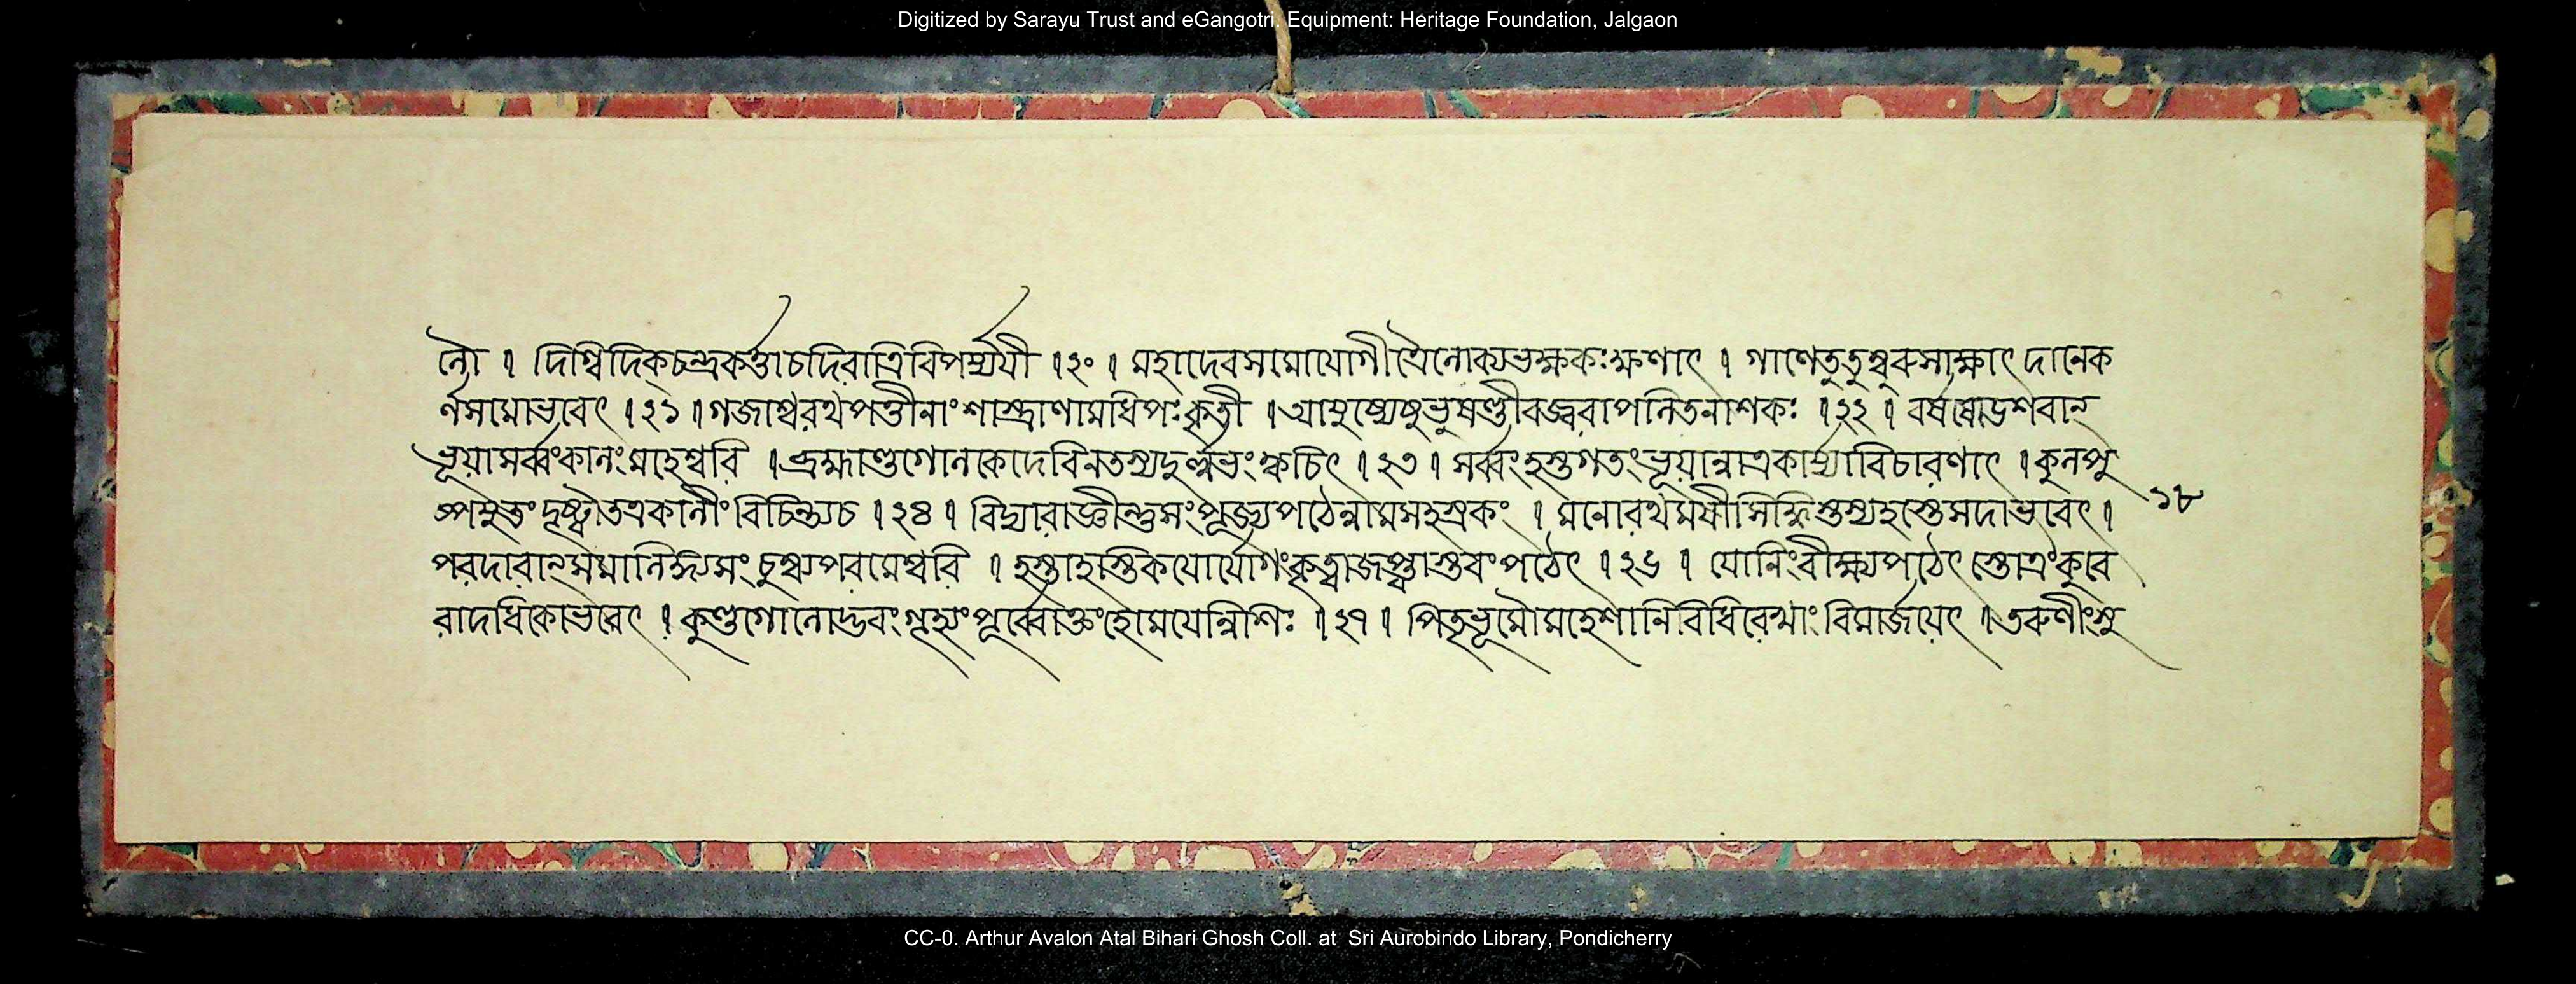 Digitized by Sarayu Trust and eGangotri. Equipment: Heritage Foundation, Jalgaon
লৌ । দিগ্বিদিক্চন্দ্রকর্ত্তাচদিবারাত্রিবিপর্য্যযী ।২০। মহাদেবসমোযোগীত্রৈলোক্যভক্ষকঃক্ষণাৎ । গাণেতুতুম্বুরুসাক্ষাৎ দানেক
র্ণসমোভবেৎ ।২১।গজাশ্বরথপত্তীনাংশাস্ত্রাণামধিপঃকৃতী ।আয়ুষ্যেষুভুষণ্ডীবজ্জরাপলিতনাশকঃ ।২২। বর্ষষোডশবান্
ভূয়াৎসর্ব্বকালংমহেশ্বরি ।ব্রহ্মাণ্ডগোলকেদেবিনতস্যদুর্ল্লভংক্বচিৎ ।২৩। সর্ব্বংহস্তগতংভূয়ান্নাত্রকার্য্যাবিচারণাৎ ।কুলপু
ষ্পযুতংদৃষ্ট্বাতত্রকালীংবিচিন্ত্যচ ।২৪। বিদ্যারাজ্ঞীন্তুসংপূজ্যপঠেন্নামসহস্রকং । মনোরথময়ীসিদ্ধিস্তস্যহস্তেসদাভবেৎ।
পরদারান্সমালিঙ্গ্যসংচুম্ব্যপরমেশ্বরি । হস্তাহস্তিকযোর্যোগংকৃত্বাজপ্ত্বাস্তবংপঠেৎ ।২৬। যোনিংবীক্ষ্যপঠেৎ স্তোত্রংকুবে
রাদধিকোভবেৎ । কুণ্ডগোলোদ্ভবংগৃহ্যংপূর্ব্বোক্তংহোময়েন্নিশিঃ ।২৭। পিতৃভূমৌমহেশানিবিধিরেখাংবিমার্জয়েৎ ।তরুণীংসু
১৮
CC-0. Arthur Avalon Atal Bihari Ghosh Coll. at Sri Aurobindo Library, Pondicherry